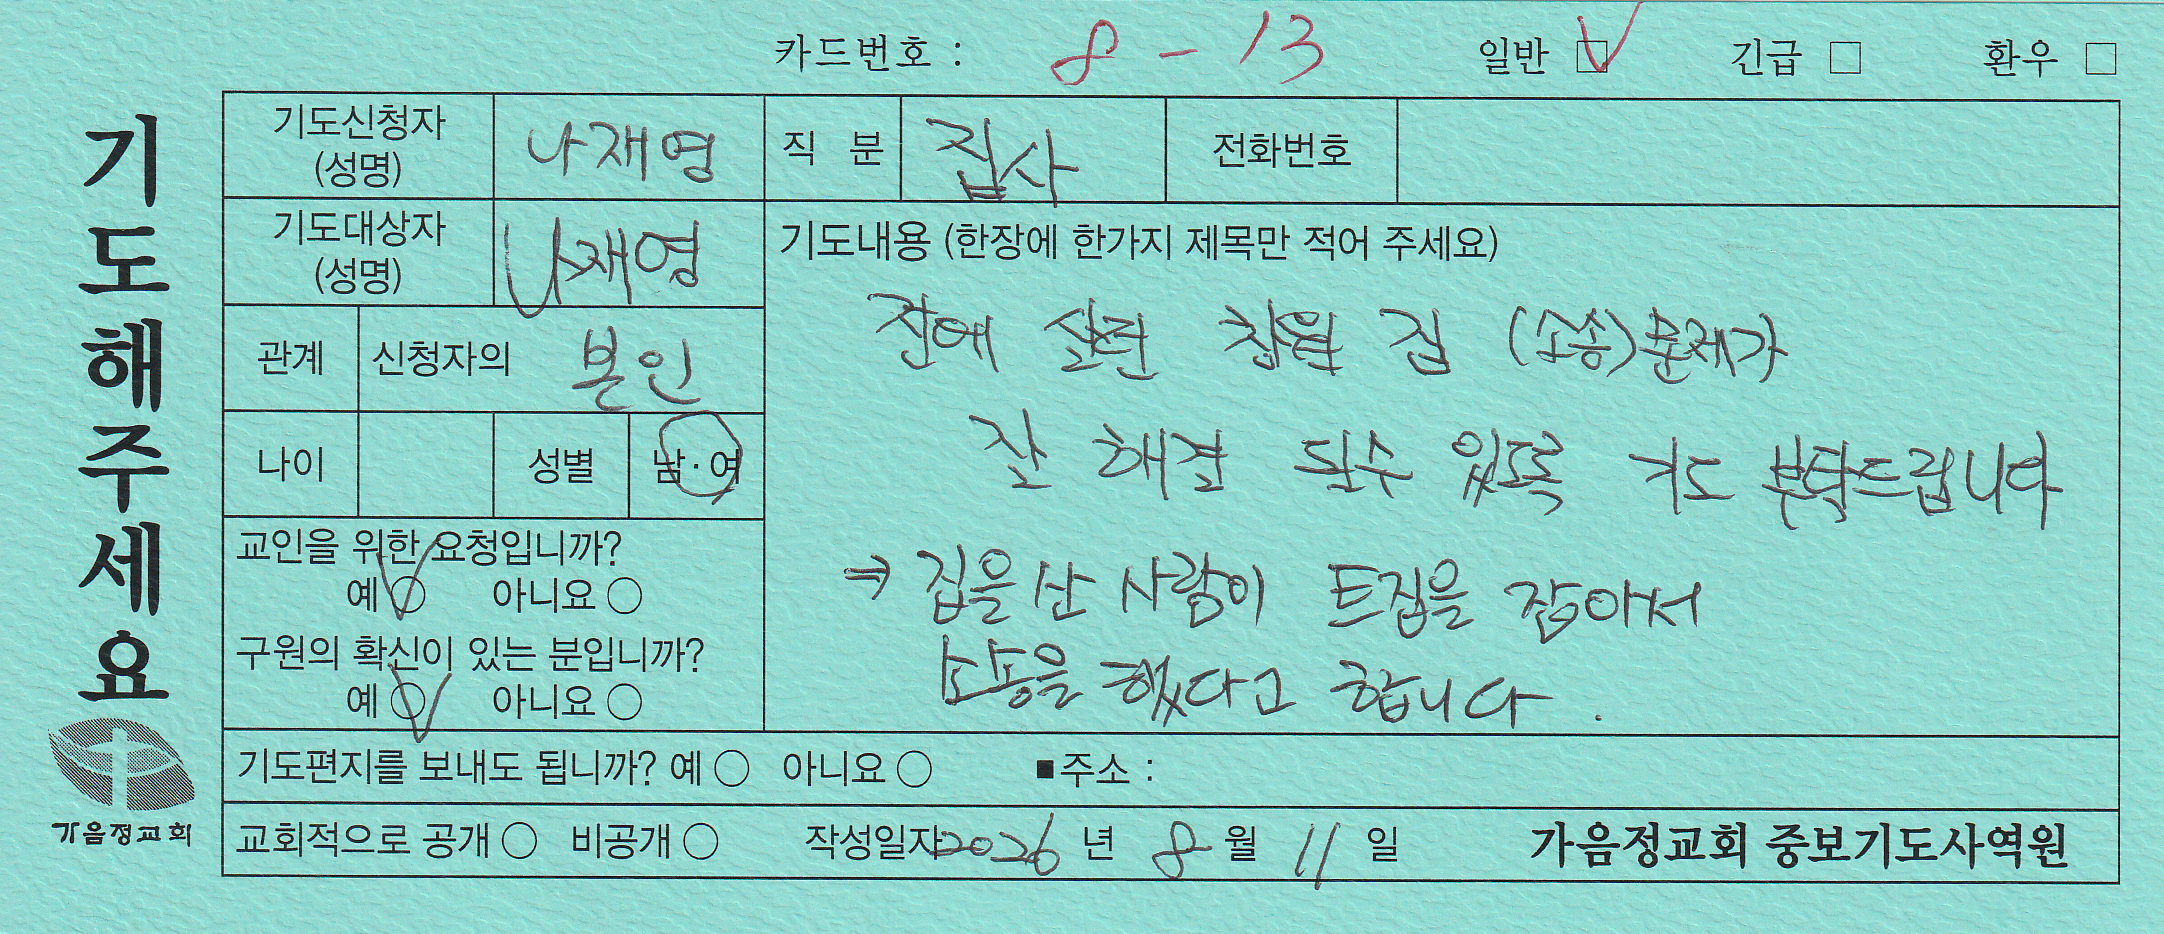 카드번호 : 8 - 13 일반 □ 긴급 □ 환우 □
기도해주세요
기도신청자 (성명) 나재영 직 분 집사 전화번호
기도대상자 (성명) 나재영
기도내용 (한장에 한가지 제목만 적어 주세요)
관계 신청자의 본인
전에 살던 창원 집 (소송)문제가
나이 성별 남·여
잘 해결 될수 있도록 기도 부탁드립니다
교인을 위한 요청입니까?
예 ○ 아니요 ○
⇒ 집을 산 사람이 트집을 잡아서
구원의 확신이 있는 분입니까?
예 ○ 아니요 ○
소송을 했다고 합니다.
기도편지를 보내도 됩니까? 예 ○ 아니요 ○ ■주소 :
가음정교회
교회적으로 공개 ○ 비공개 ○ 작성일자 2026 년 8 월 11 일 가음정교회 중보기도사역원